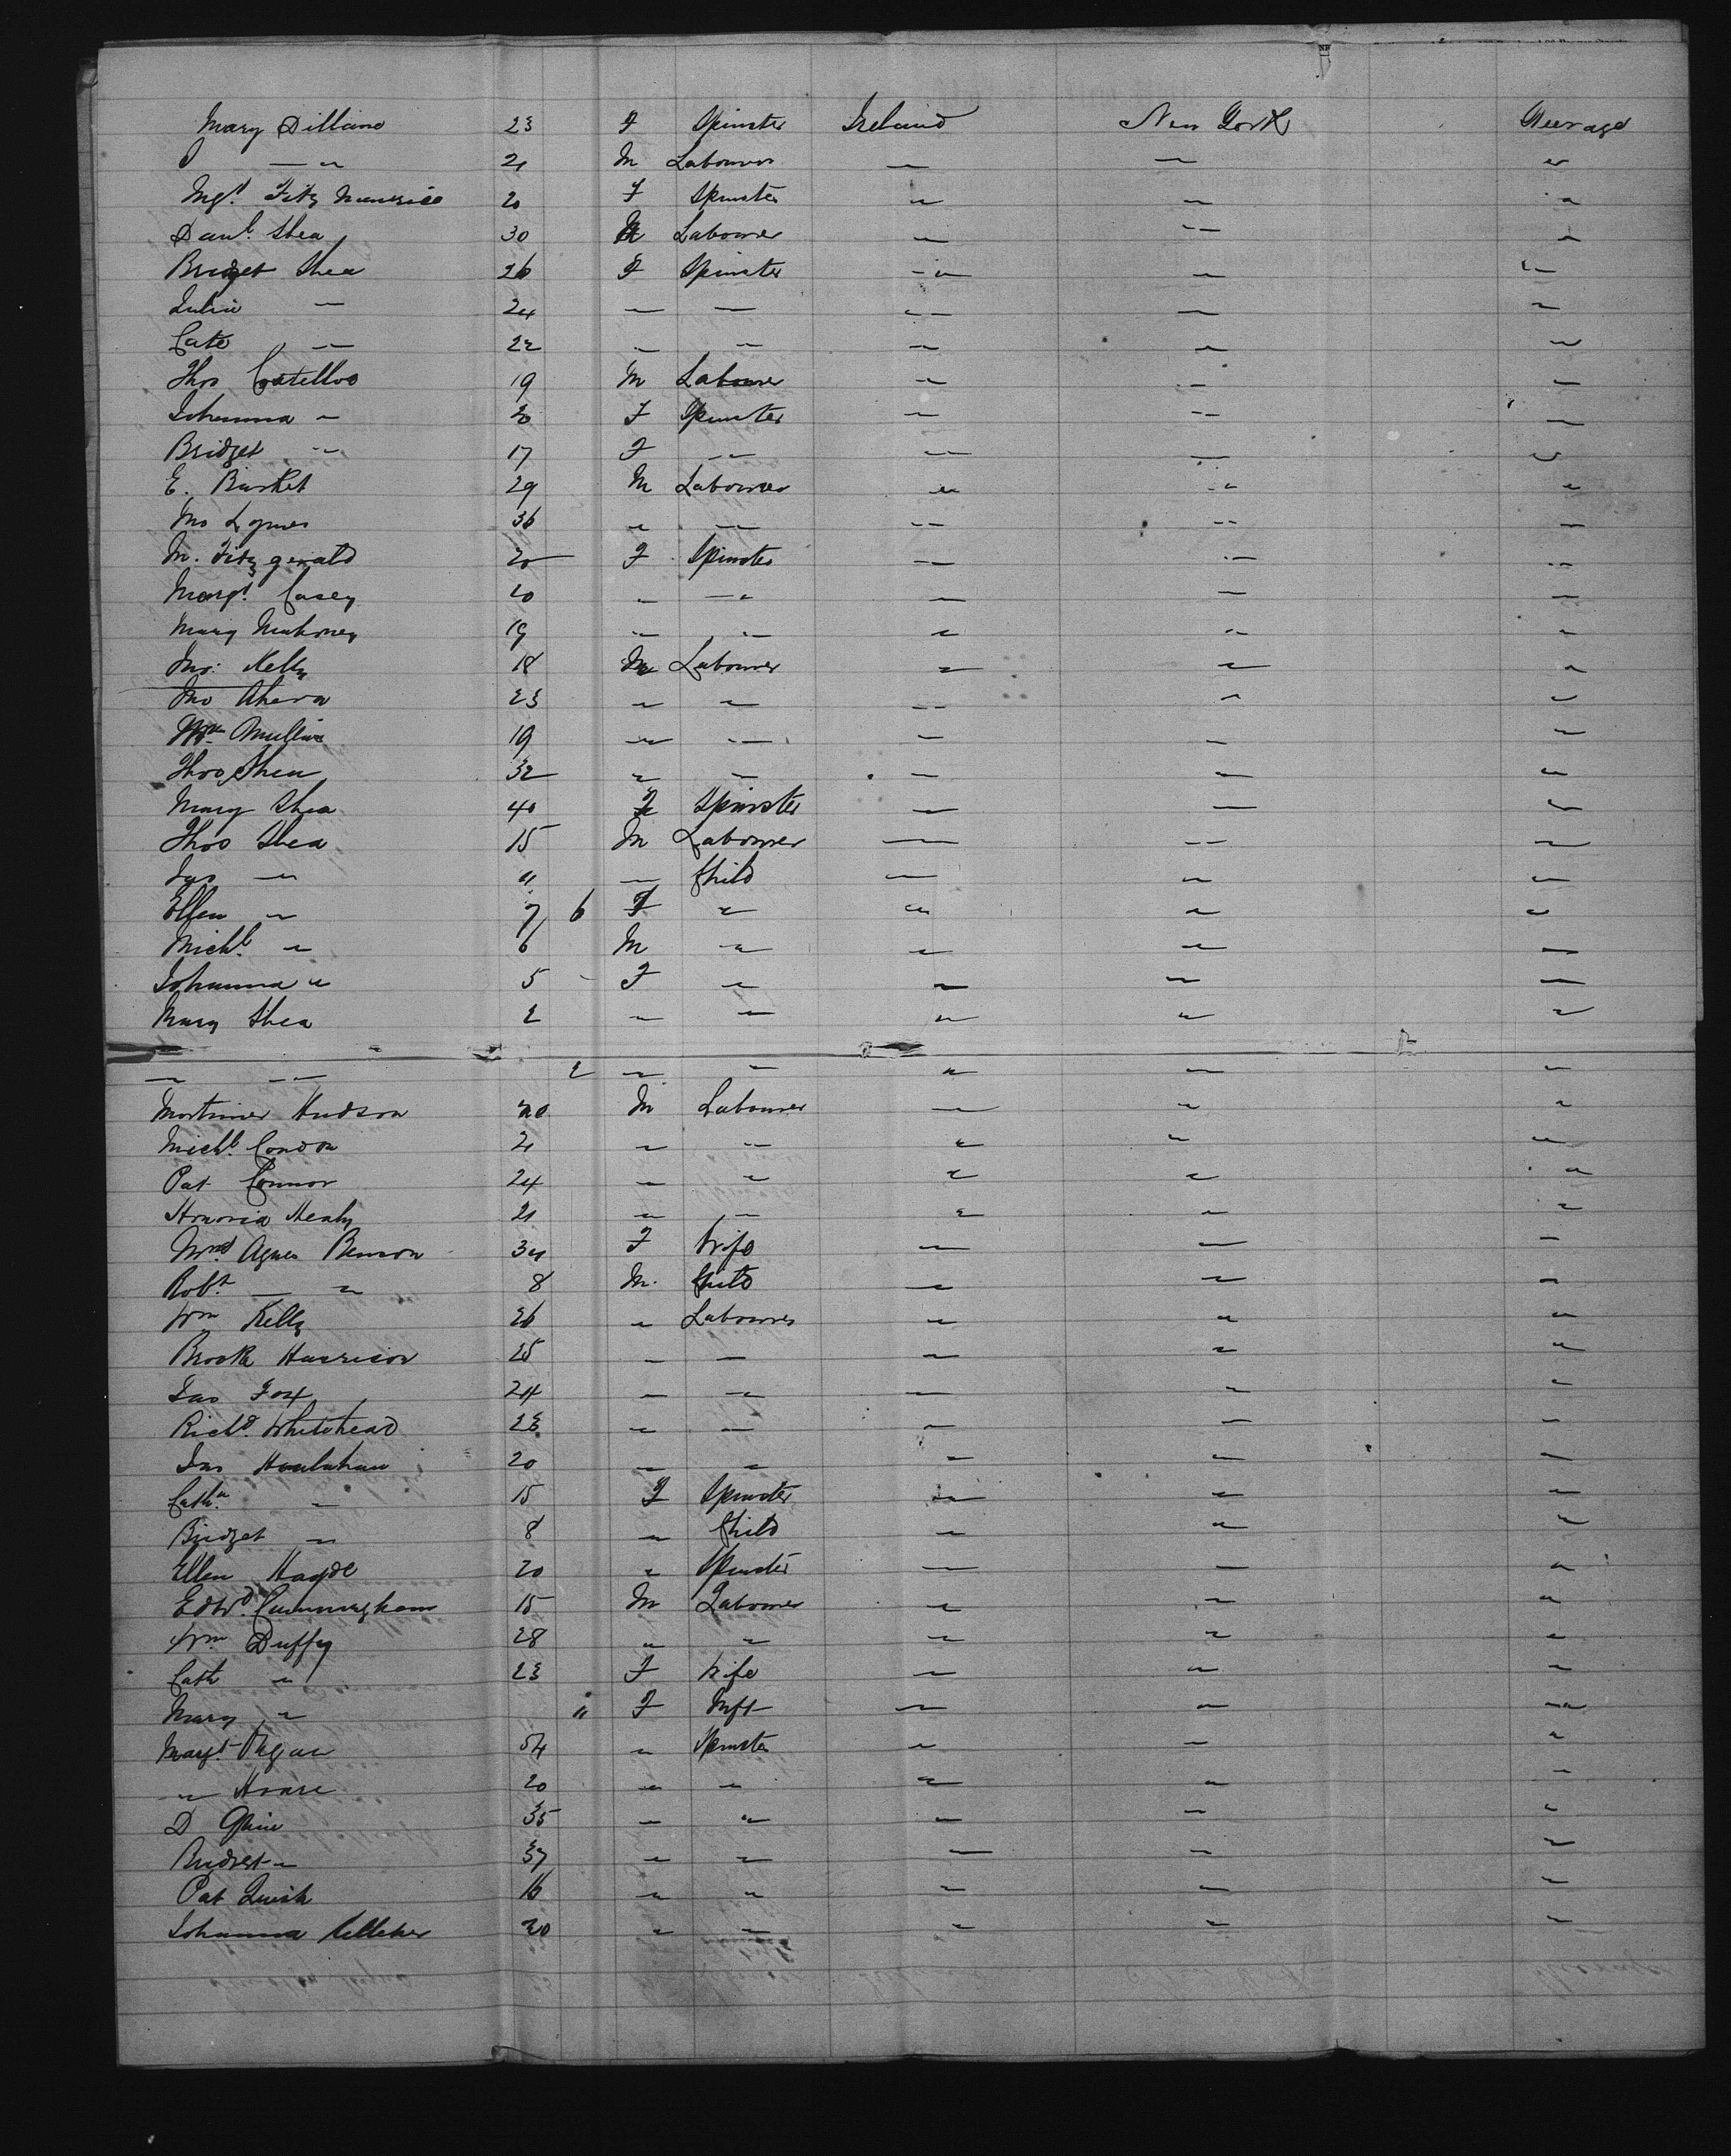 Mary Dillane 23 F Spinster Ireland New York Steerage
J — " 21 M Labourer — — "
Mgt. Fitz Maurice 20 F Spinster " " "
Danl. Shea 30 M Labourer " " "
Bridget Shea 26 F Spinster " " "
Julia — 24 — — " — "
Cate — 22 " " " " "
Thos Costelloe 19 M Labourer " " "
Johanna " 20 F Spinster " " "
Bridget " 17 F " " " "
E. Burket 29 M Labourer " " "
Jno Lynes 36 " " " " "
M. Fitzgerald 20 F Spinster " " "
Margt. Casey 20 " " " " "
Mary Mahoney 19 " " " " "
Jno. Kelly 18 M Labourer " " "
Jno Ahern 23 " " " " "
Wm Mullins 19 " " " " "
Thos Shea 32 " " " " "
Mary Shea 40 F Spinster " " "
Thos Shea 15 M Labourer " " "
Jas " 11 " Child " " "
Ellen " 7 6 F " " " "
Michl. " 6 M " " " "
Johanna " 5 F " " " "
Mary Shea 2 " " " " "
" " 2 " " " " "
Mortimer Hudson 20 M Labourer " " "
Michl. Condon 21 " " " " "
Pat Connor 24 " " " " "
Honoria Healy 21 " " " " "
Mrs Agnes Benson 34 F Wife " " "
Robt. " 8 M. Child " " "
Wm Kelly 26 " Labourer " " "
Brook Harrison 25 " " " " "
Jas Fox 24 " " " " "
Richd. Whitehead 23 " " " " "
Jas Houlahan 20 " " " " "
Cathn. " 15 F Spinster " " "
Bridget " 8 " Child " " "
Ellen Hayde 20 " Spinster " " "
Edwd. Cunningham 15 M Labourer " " "
Wm Duffy 28 " " " " "
Cath " 23 F Wife " " "
Mary " 11 F Inft " " "
Margt. 54 " Spinster " " "
" Hoare 20 " " " " "
D 35 " " " " "
Bridget " 37 " " " " "
Pat Quirk 16 " " " " "
Johanna Kelleher 20 " " " " "